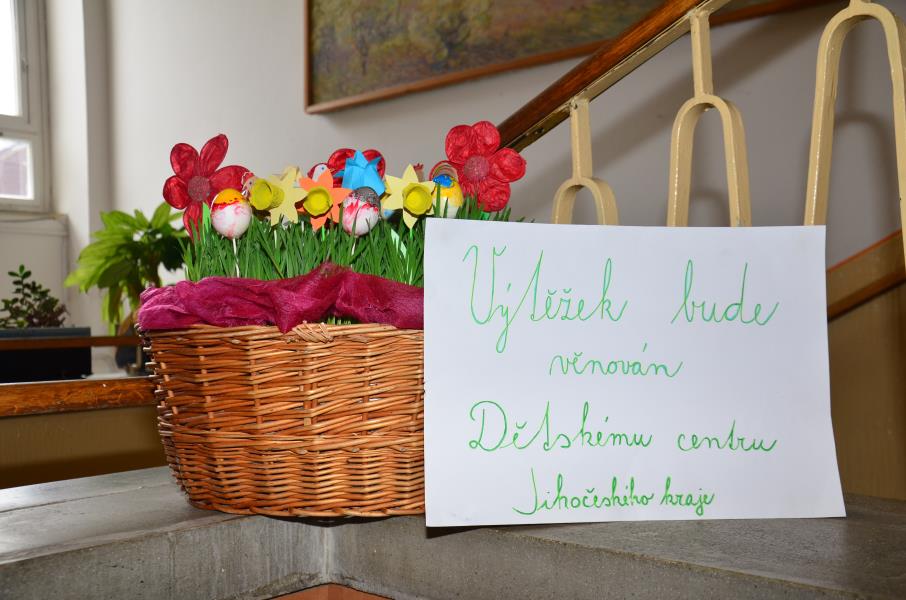 Výtěžek bude
věnován
Dětskému centru
Jihočeského kraje